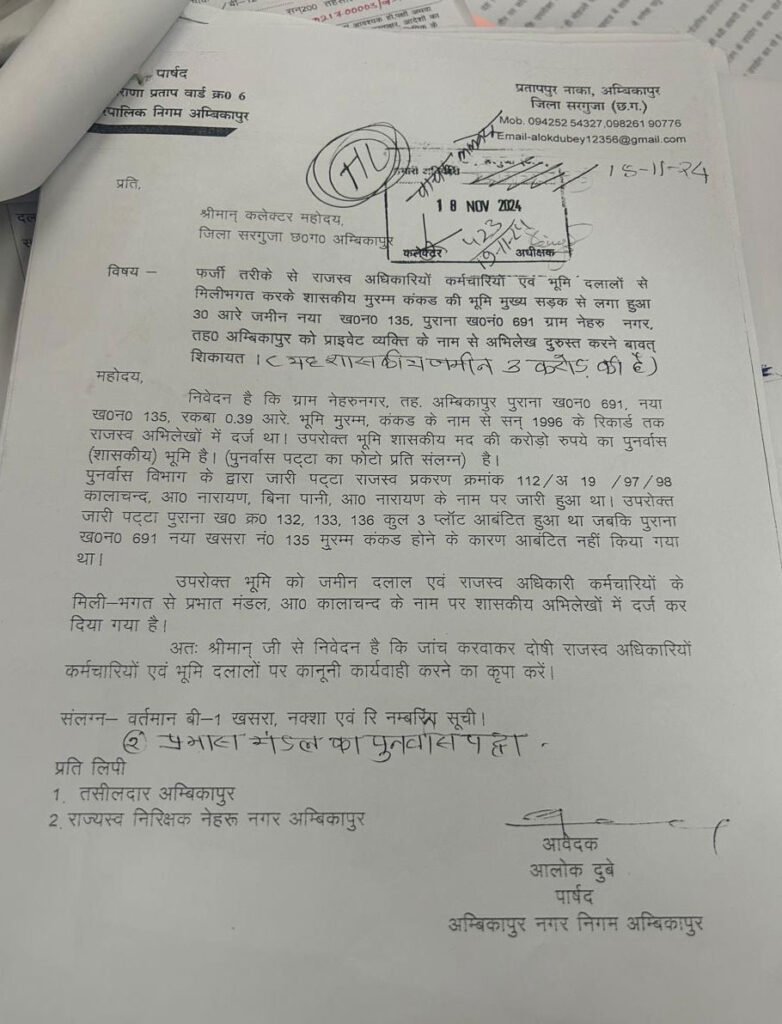 सन200
217-00003/
आवश्यक ही
आदेशों का
पार्षद
राणा प्रताप वार्ड क्र0 6
रपालिक निगम अम्बिकापुर
प्रतापपुर नाका, अम्बिकापुर
जिला सरगुजा (छ.ग.)
Mob. 094252 54327,098261 90776
Email-alokdubey12356@gmail.com
TL
18-11-24
18 NOV 2024
423
19-11-24
कलेक्टर अधीक्षक
प्रति,
श्रीमान् कलेक्टर महोदय,
जिला सरगुजा छ0ग0 अम्बिकापुर
विषय – फर्जी तरीके से राजस्व अधिकारियों कर्मचारियों एवं भूमि दलालों से
मिलीभगत करके शासकीय मुरम्म कंकड की भूमि मुख्य सड़क से लगा हुआ
30 आरे जमीन नया ख0नं0 135, पुराना ख0नं0 691 ग्राम नेहरु नगर,
तह0 अम्बिकापुर को प्राइवेट व्यक्ति के नाम से अभिलेख दुरुस्त करने बावत्
शिकायत । (यह शासकीय जमीन 3 करोड़ की है)
महोदय,
निवेदन है कि ग्राम नेहरुनगर, तह. अम्बिकापुर पुराना ख0न0 691, नया
ख0न0 135, रकबा 0.39 आरे. भूमि मुरम्म, कंकड के नाम से सन् 1996 के रिकार्ड तक
राजस्व अभिलेखों में दर्ज था। उपरोक्त भूमि शासकीय मद की करोड़ो रुपये का पुनर्वास
(शासकीय) भूमि है। (पुनर्वास पट्टा का फोटो प्रति संलग्न) है।
पुनर्वास विभाग के द्वारा जारी पट्टा राजस्व प्रकरण क्रमांक 112/अ 19 /97/98
कालाचन्द, आ0 नारायण, बिना पानी, आ0 नारायण के नाम पर जारी हुआ था। उपरोक्त
जारी पट्टा पुराना ख0 क्र0 132, 133, 136 कुल 3 प्लॉट आबंटित हुआ था जबकि पुराना
ख0न0 691 नया खसरा नं0 135 मुरम्म कंकड होने के कारण आबंटित नहीं किया गया
था।
उपरोक्त भूमि को जमीन दलाल एवं राजस्व अधिकारी कर्मचारियों के
मिली–भगत से प्रभात मंडल, आ0 कालाचन्द के नाम पर शासकीय अभिलेखों में दर्ज कर
दिया गया है।
अतः श्रीमान् जी से निवेदन है कि जांच करवाकर दोषी राजस्व अधिकारियों
कर्मचारियों एवं भूमि दलालों पर कानूनी कार्यवाही करने का कृपा करें।
संलग्न– वर्तमान बी–1 खसरा, नक्शा एवं रि नम्बरिंग सूची।
② प्रभास मंडल का पुनर्वास पट्टा .
प्रति लिपी
1. तसीलदार अम्बिकापुर
2. राज्यस्व निरिक्षक नेहरू नगर अम्बिकापुर
आवेदक
आलोक दुबे
पार्षद
अम्बिकापुर नगर निगम अम्बिकापुर